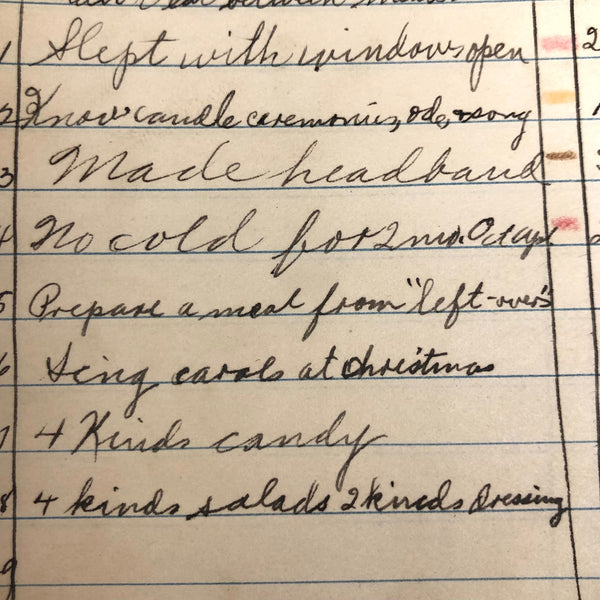 1 Slept with windows open 2
2 Know candle ceremonies, ode, & song
3 Made headband
4 No cold for 2 mo.
5 Prepare a meal from "left-overs"
6 Sing carols at Christmas
7 4 Kinds candy
8 4 kinds salads 2 kinds Dressing
9